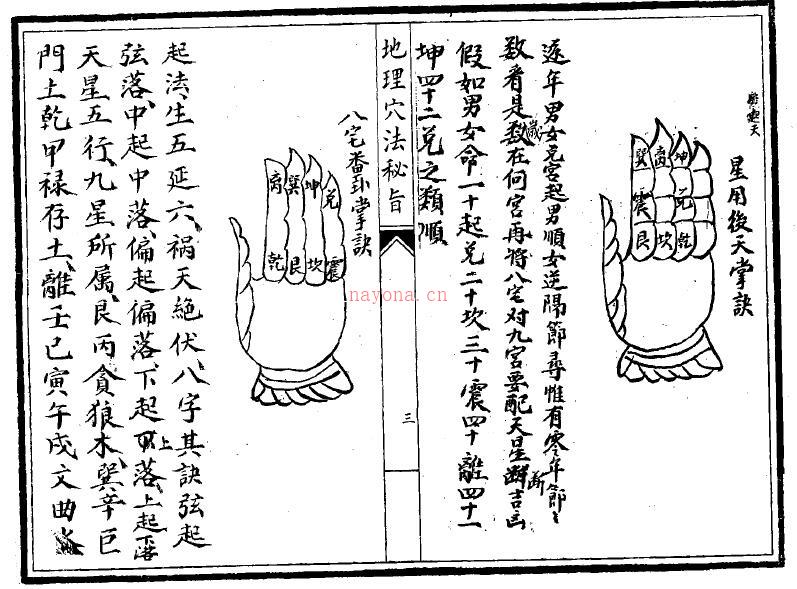 星用後天掌訣
巽 离 坤
震 兑
艮 坎 乾
逐年男女兑宫起男順女逆隔節尋惟有零年節〻
数看是歲数在何宫再将八宅对九宫要配天星断吉凶
假如男女命一十起兑二十坎三十震四十離四十一
坤四十二兑之類順
地理穴法秘旨
三
八宅番卦掌訣
离 巽 坤 兑
乾 艮 坎 震
起法生五延六祸天絶伏八字其訣弦起
弦落中起中落偏起偏落下起上落上起下落
天星五行九星所属艮丙貪狼木巽辛巨
門土乾甲禄存土離壬已寅午戌文曲
nayona.cn